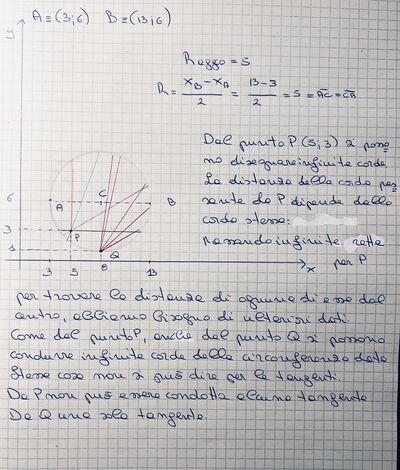 A ≡ (3; 6) B ≡ (13; 6)
y
Raggio = 5
R = (x_B - x_A)/2 = (13-3)/2 = 5 = AC = CB
Dal punto P (5; 3) si posso
no disegnare infinite corde
La distanza della corda pas
sante da P dipende dalla
corda stessa:
passando infinite rette
per P
6 A C B
3 P
1 Q
3 5 8 13 x
per trovare la distanza di ognuna di esse dal
centro, abbiamo bisogno di ulteriori dati.
Come dal punto P, anche dal punto Q si possono
condurre infinite corde della circonferenza data
Stessa cosa non si può dire per le tangenti.
Da P non può essere condotta alcuna tangente
Da Q una sola tangente.